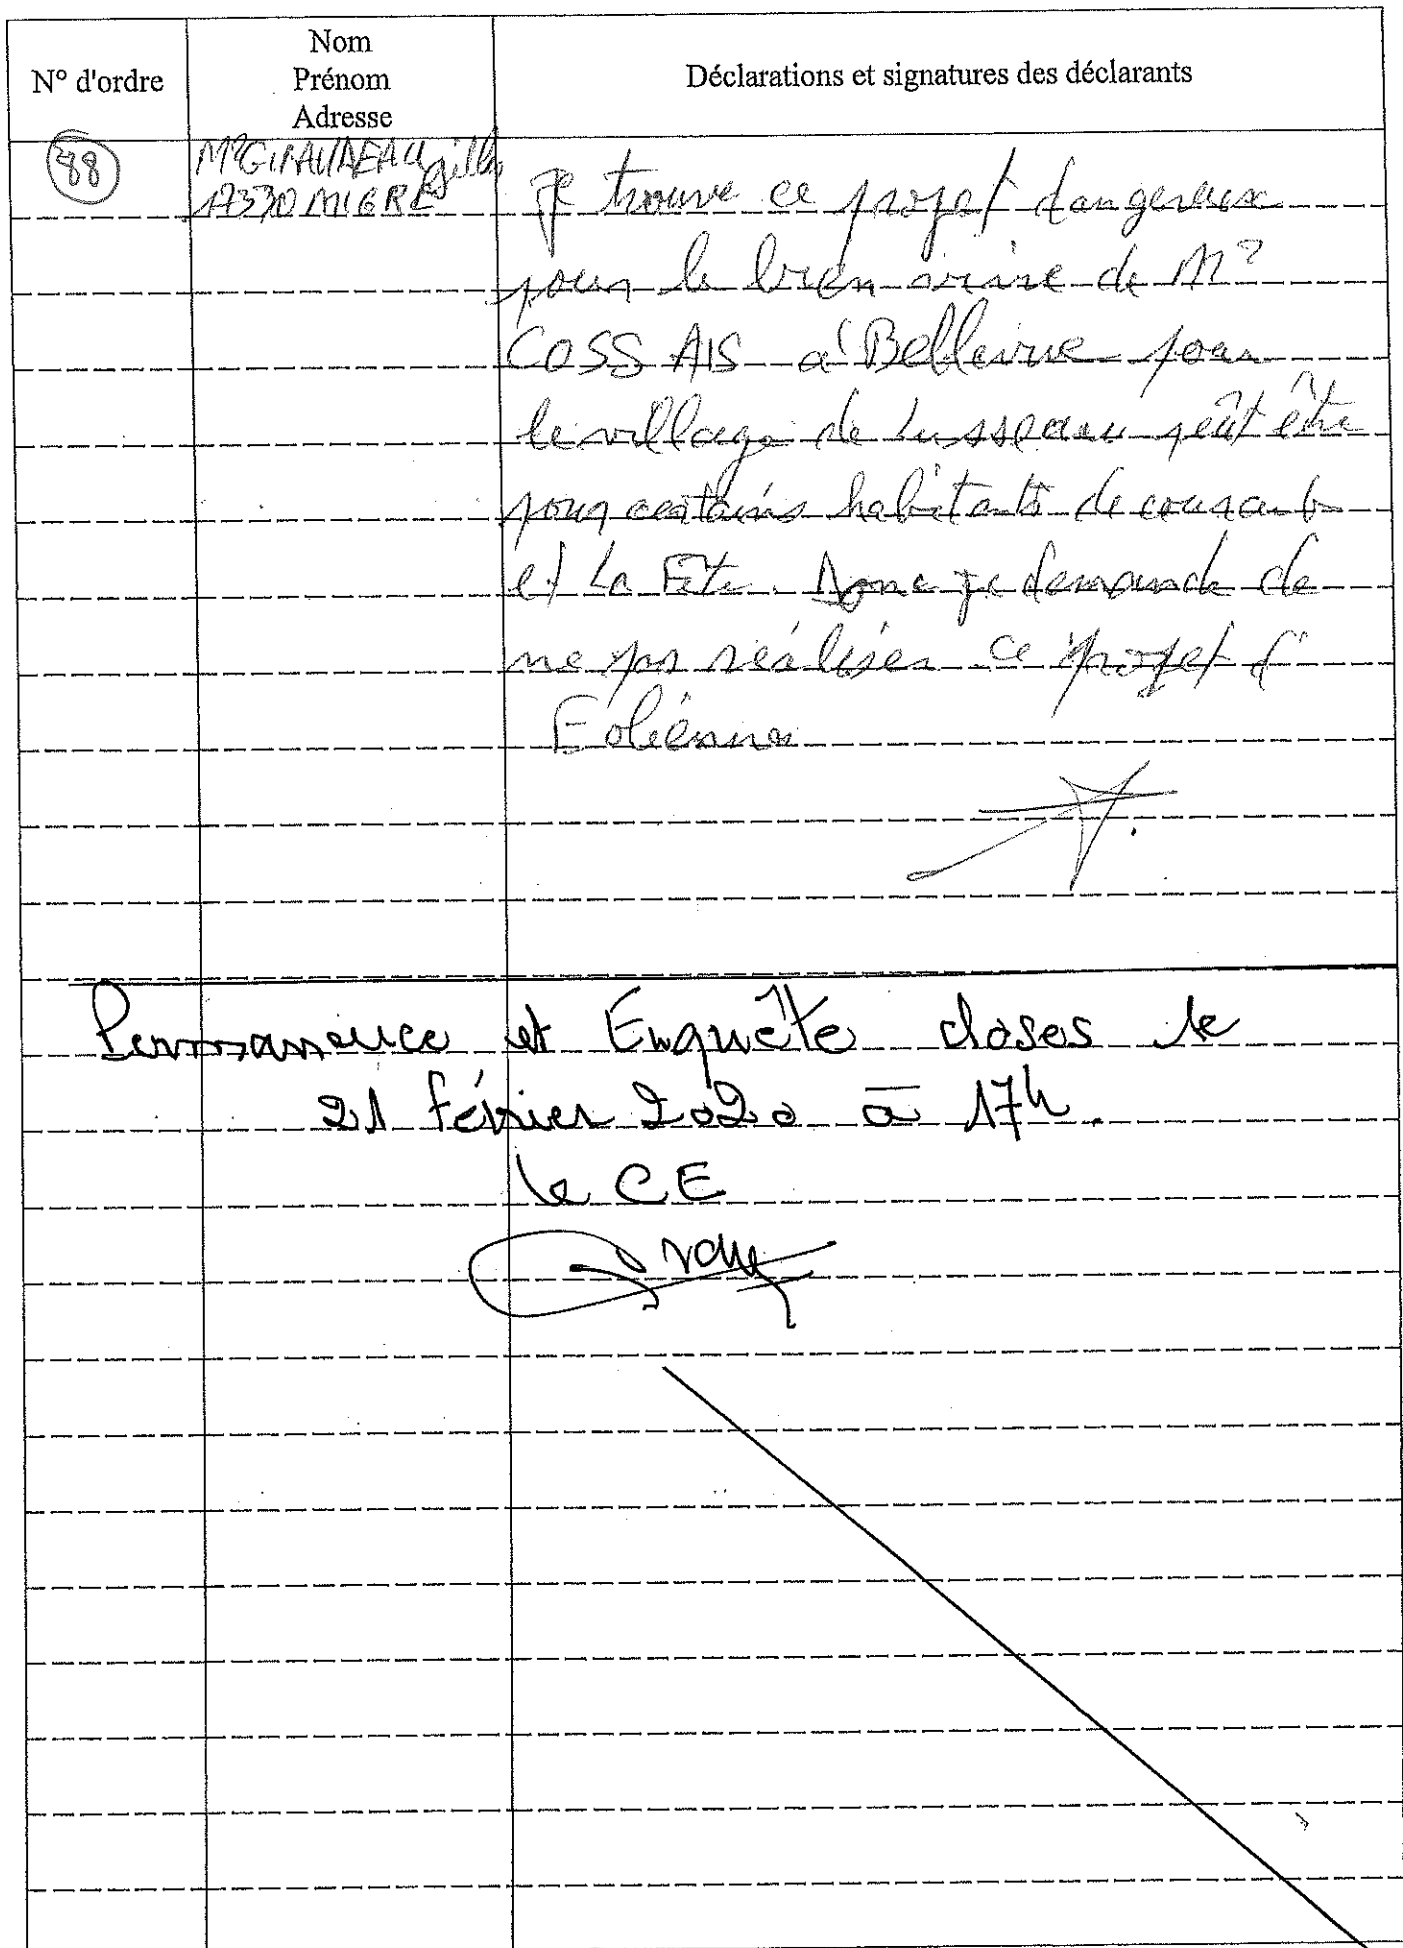 N° d'ordre
Nom
Prénom
Adresse
Déclarations et signatures des déclarants
88
Mr GIRAUDEAU Gilles
17330 MIGRE
Je trouve ce projet dangereux
pour le bien vivre de Mr
COSSAIS à Bellevue pour
le village de Lusseau peût être
pour certains habitants de courant
et La Fête. Donc je demande de
ne pas réaliser ce projet d'
Eoliennes
Permanence et Enquête closes le
21 février 2020 à 17h.
le CE